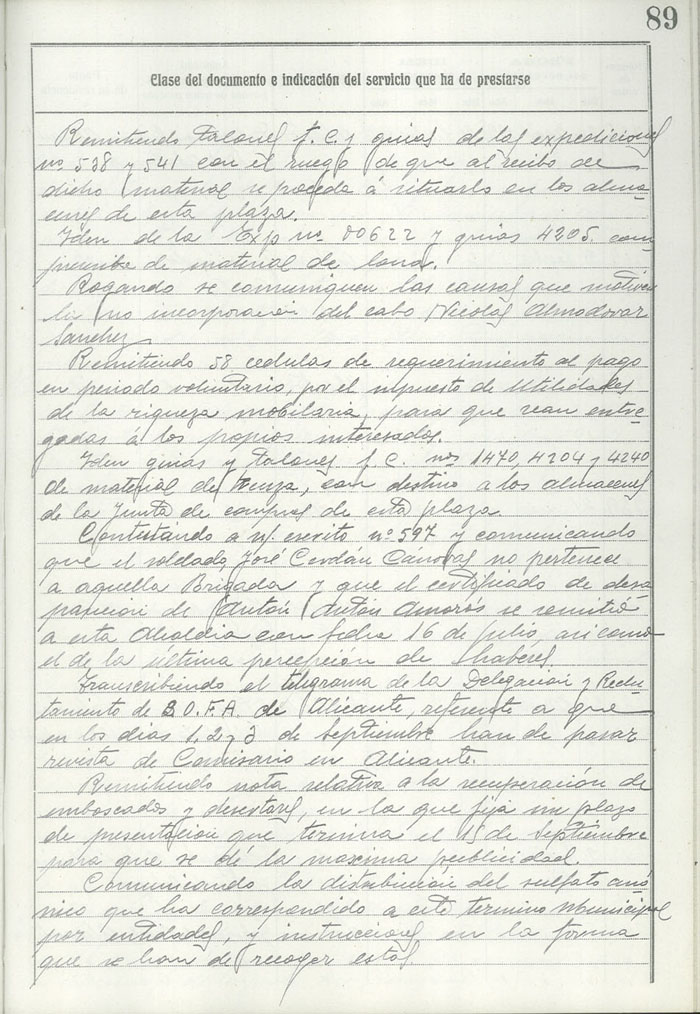 89
Clase del documento e indicación del servicio que ha de prestarse
Remitiendo talones f. c. y guias de las expediciones
nos 538 y 541 con el ruego de que al recibo de
dicho material se proceda á situarlo en los alma-
cenes de esta plaza.
Iden de la Exp no 00622 y guias 4205. com-
prensiba de material de lana.
Rogando se comuniquen las causas que motiven
la no incorporación del cabo Nicolás Almodovar
Sanchez
Remitiendo 58 cedulas de requerimiento al pago
en periodo voluntario, por el impuesto de Utilidades
de la riqueza mobilaria, para que sean entre-
gadas á los propios interesados.
Iden guias y talones f. C. nos 1470, 4204 y 4240
de material de, con destino a los almacenes
de la Junta de compras de esta plaza
Contestando a n/. escrito nº 597 y comunicando
que el soldado José Cerdán Cánovas no pertenece
a aquella Brigada y que el certificado de desa-
parición de Antón Antón Amorós se remitió
a esta Alcaldia con fecha 16 de Julio, asi como
el de la última percepción de Haberes
Transcribiendo el telegrama de la Delegacion y Reclu-
tamiento de B.O.F.A. de Alicante, referente a que
en los dias 1, 2 y 3 de Septiembre han de pasar
revista de Comisario en Alicante.
Remitiendo nota relativa a la recuperación de
emboscados y desertores, en la que fija un plazo
de presentacion que termina el 15 de Septiembre
para que se dé la maxima publicidad.
Comunicando la distribución del sulfato amó-
nico que ha correspondido a este termino Municipal
por entidades, e instrucciones en la forma
que se han de recoger estos